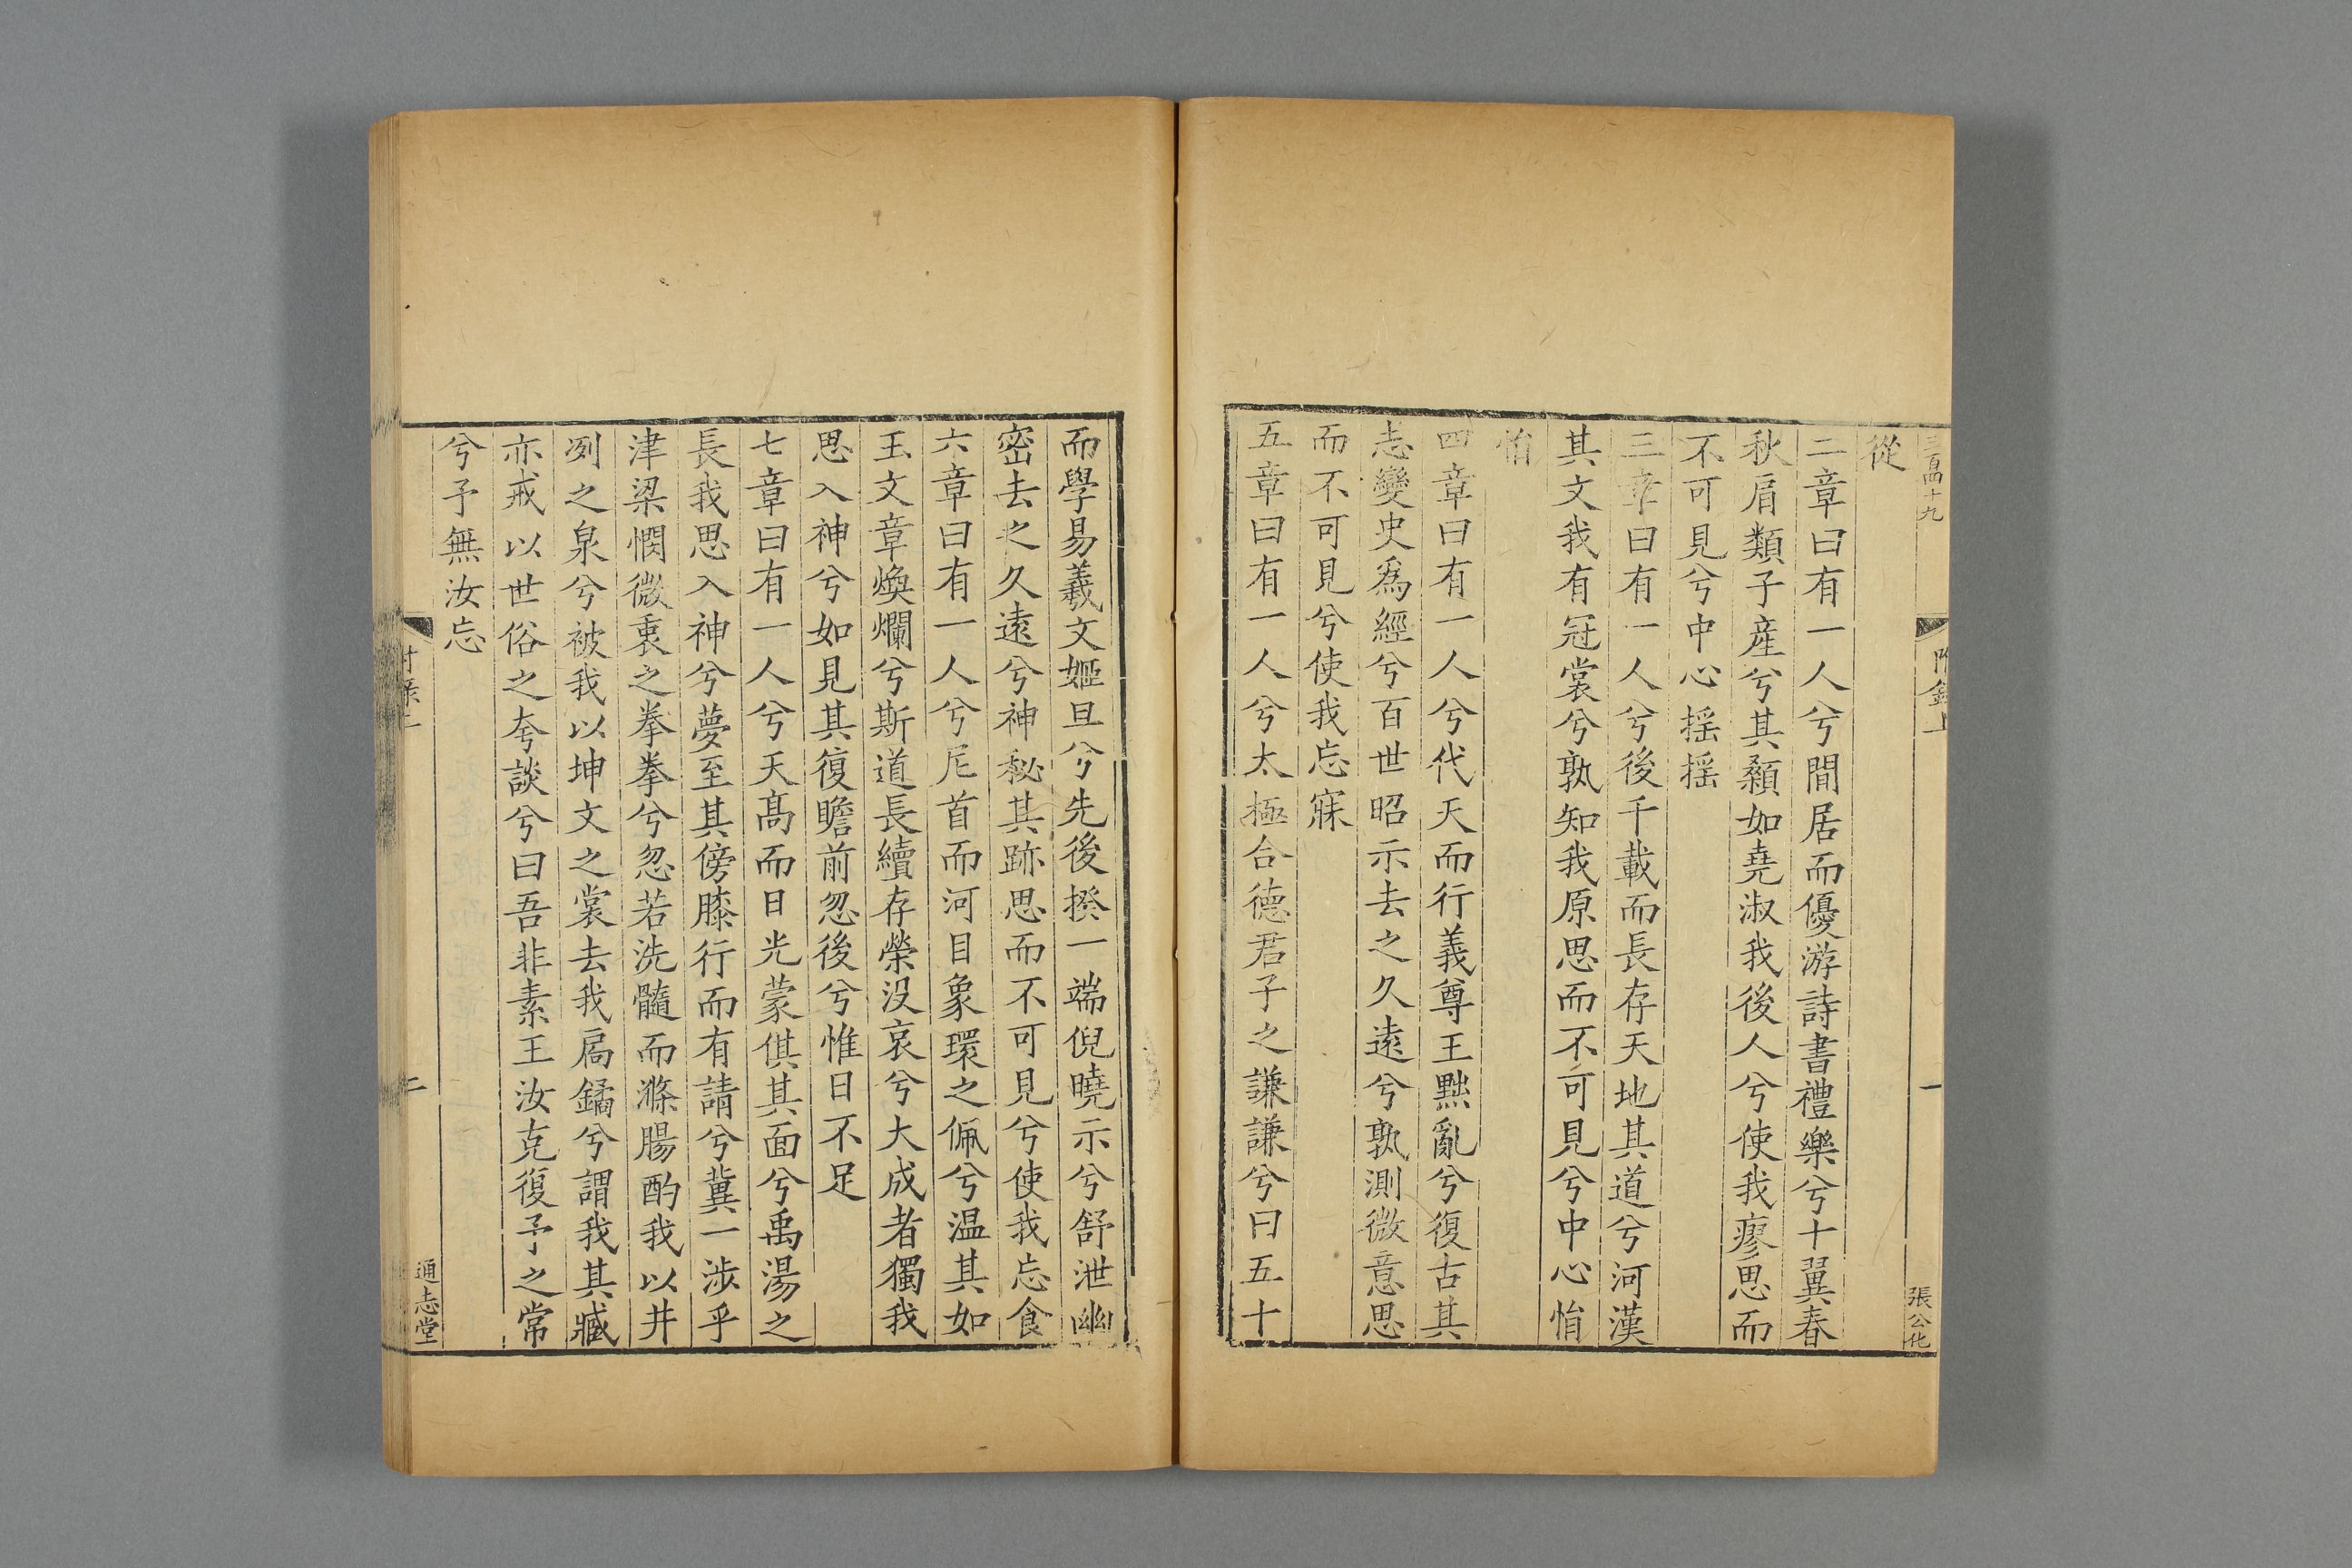 三百四十九
附錄上
一
張公化
從
二章曰有一人兮間居而優游詩書禮樂兮十翼春
秋肩類子產兮其顙如堯淑我後人兮使我瘳思而
不可見兮中心揺揺
三章曰有一人兮後千載而長存天地其道兮河漢
其文我有冠裳兮孰知我原思而不可見兮中心悁
悁
四章曰有一人兮代天而行義尊王黜亂兮復古其
志變史爲經兮百世昭示去之久遠兮孰測微意思
而不可見兮使我忘寐
五章曰有一人兮太極合德君子之謙謙兮曰五十
而學易羲文姬旦兮先後揆一端倪曉示兮舒泄幽
密去之久遠兮神秘其跡思而不可見兮使我忘食
六章曰有一人兮尼首而河目象環之佩兮温其如
玉文章煥爛兮斯道長續存榮没哀兮大成者獨我
思入神兮如見其復瞻前忽後兮惟日不足
七章曰有一人兮天髙而日光蒙倛其面兮禹湯之
長我思入神兮夢至其傍膝行而有請兮冀一涉乎
津梁憫微衷之拳拳兮忽若洗髓而滌腸酌我以井
冽之泉兮被我以坤文之裳去我扃鐍兮謂我其臧
亦戒以世俗之夸談兮曰吾非素王汝克復予之常
兮予無汝忘
二
通志堂